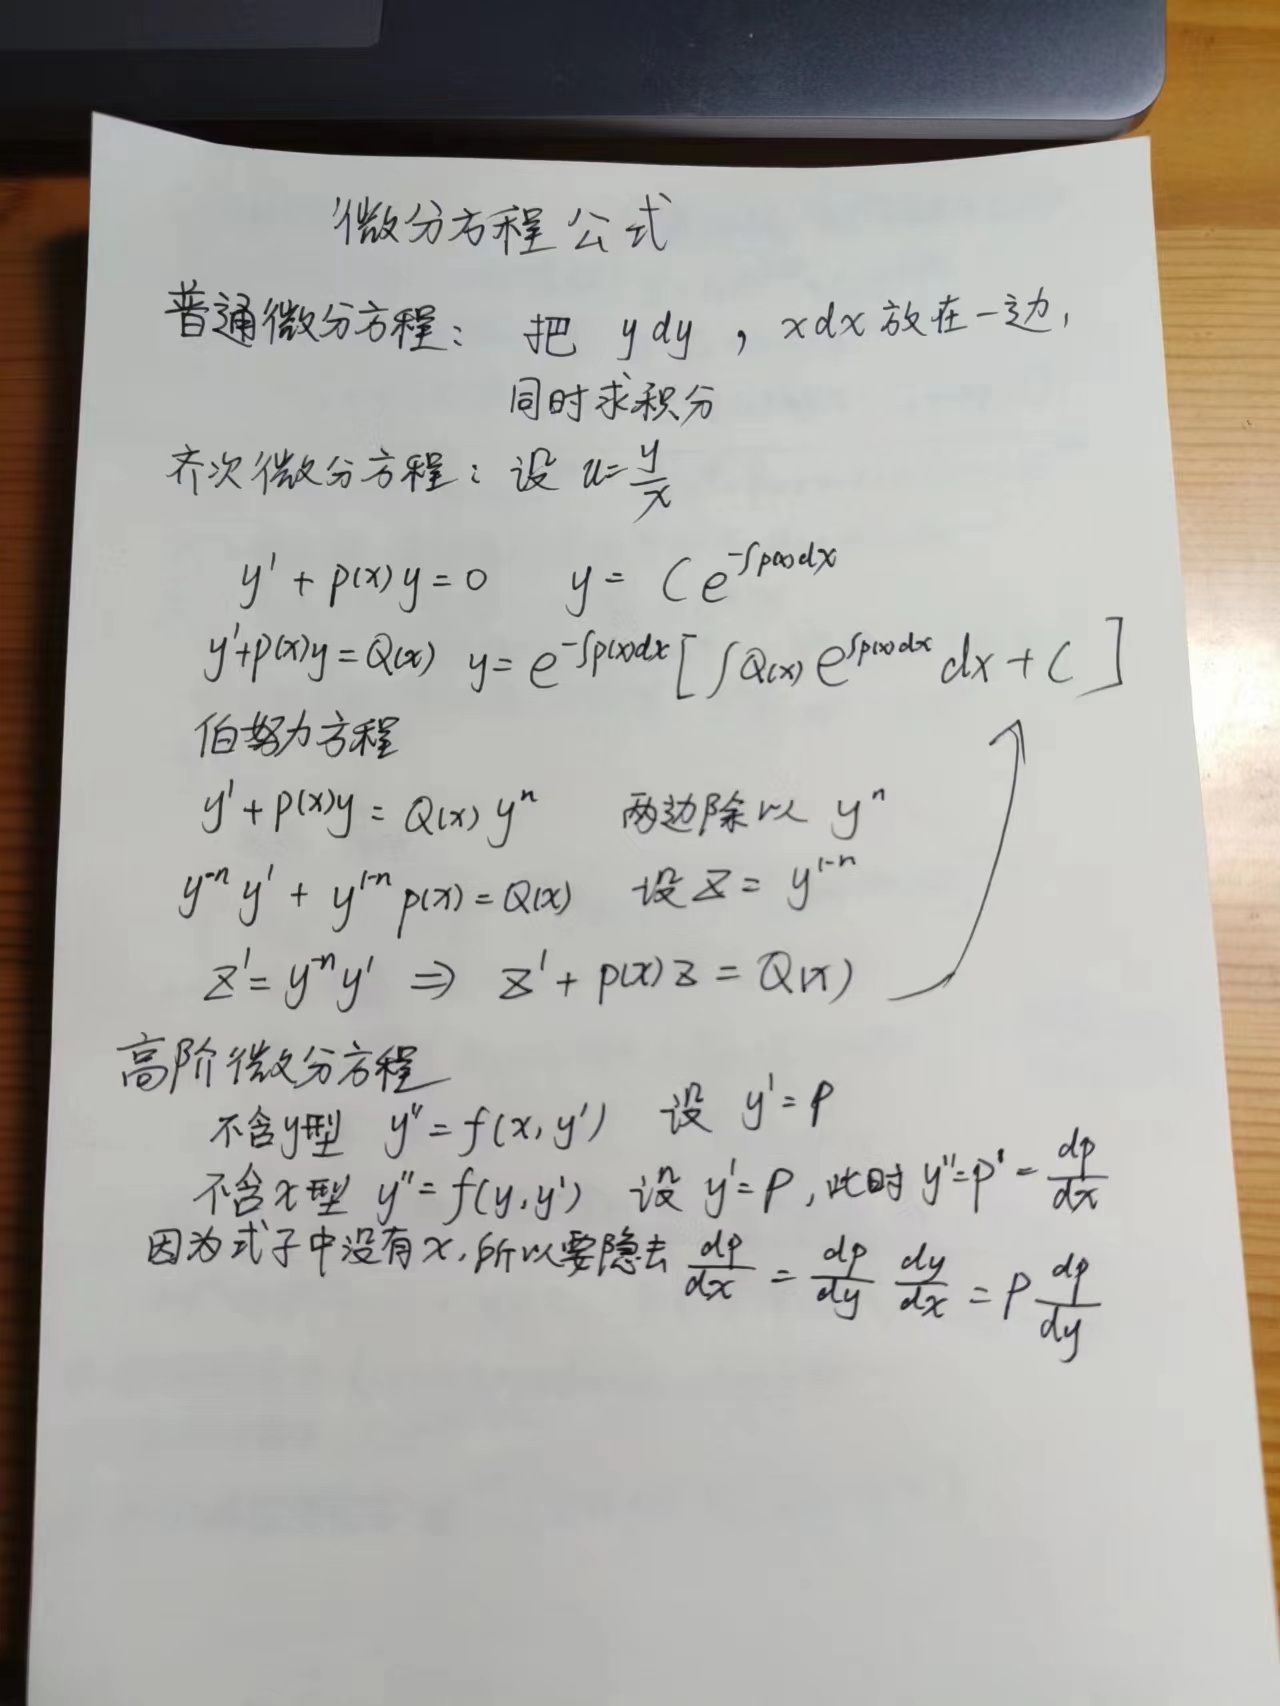 微分方程公式
普通微分方程： 把 ydy , xdx 放在一边,
同时求积分
齐次微分方程：设 u=y/x
y' + p(x)y=0 y= Ce^{-∫p(x)dx}
y'+p(x)y=Q(x) y=e^{-∫p(x)dx}[∫Q(x)e^{∫p(x)dx}dx+C]
伯努力方程
y'+p(x)y=Q(x)y^n 两边除以 y^n
y^{-n}y' + y^{1-n}p(x)=Q(x) 设 z= y^{1-n}
z'=y^{-n}y' ⇒ z'+p(x)z=Q(x)
高阶微分方程
不含y型 y''=f(x,y') 设 y'=p
不含x型 y''=f(y,y') 设 y'=p,此时 y''=p'=dp/dx
因为式子中没有x,所以要隐去 dp/dx = dp/dy dy/dx = p dp/dy